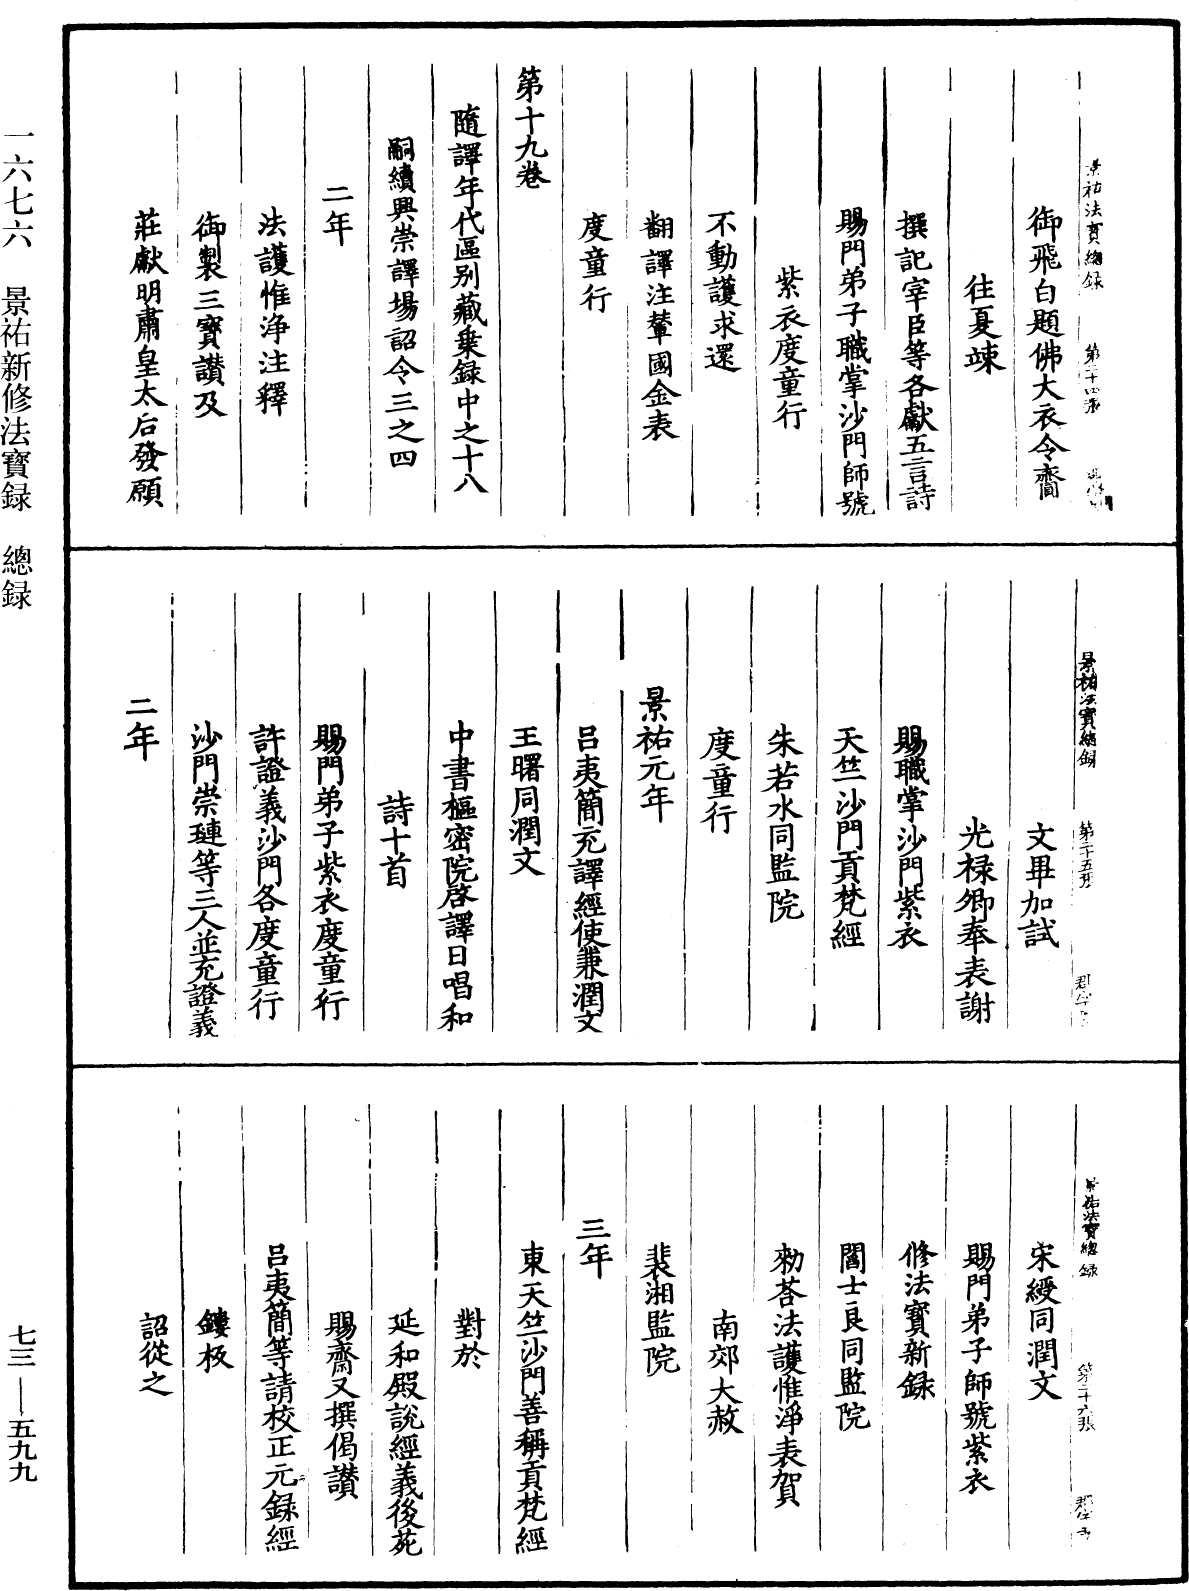 一六七六 景祐新修法寶録 總録
七三—五九九
景祐法寶總録 第二十四張
御飛白題佛大衣令齎
往夏竦
撰記宰臣等各獻五言詩
賜門弟子職掌沙門師號
紫衣度童行
不動護求還
翻譯注輦國金表
度童行
第十九卷
隨譯年代區别藏乗録中之十八
嗣續興崇譯場詔令三之四
二年
法護惟浄注釋
御製三寶讃及
莊獻明肅皇太后發願
景祐法寶總録 第二十五張
文畢加試
光禄卿奉表謝
賜職掌沙門紫衣
天竺沙門貢梵經
朱若水同監院
度童行
景祐元年
吕夷簡充譯經使兼潤文
王曙同潤文
中書樞密院啓譯日唱和
詩十首
賜門弟子紫衣度童行
許證義沙門各度童行
沙門崇璉等三人並充證義
二年
景祐法寶總録 第二十六張
宋綬同潤文
賜門弟子師號紫衣
修法寶新録
閻士良同監院
勑荅法護惟淨表賀
南郊大赦
裴湘監院
三年
東天竺沙門善稱貢梵經
對於
延和殿説經義後苑
賜齋又撰偈讃
吕夷簡等請校正元録經
鏤板
詔從之